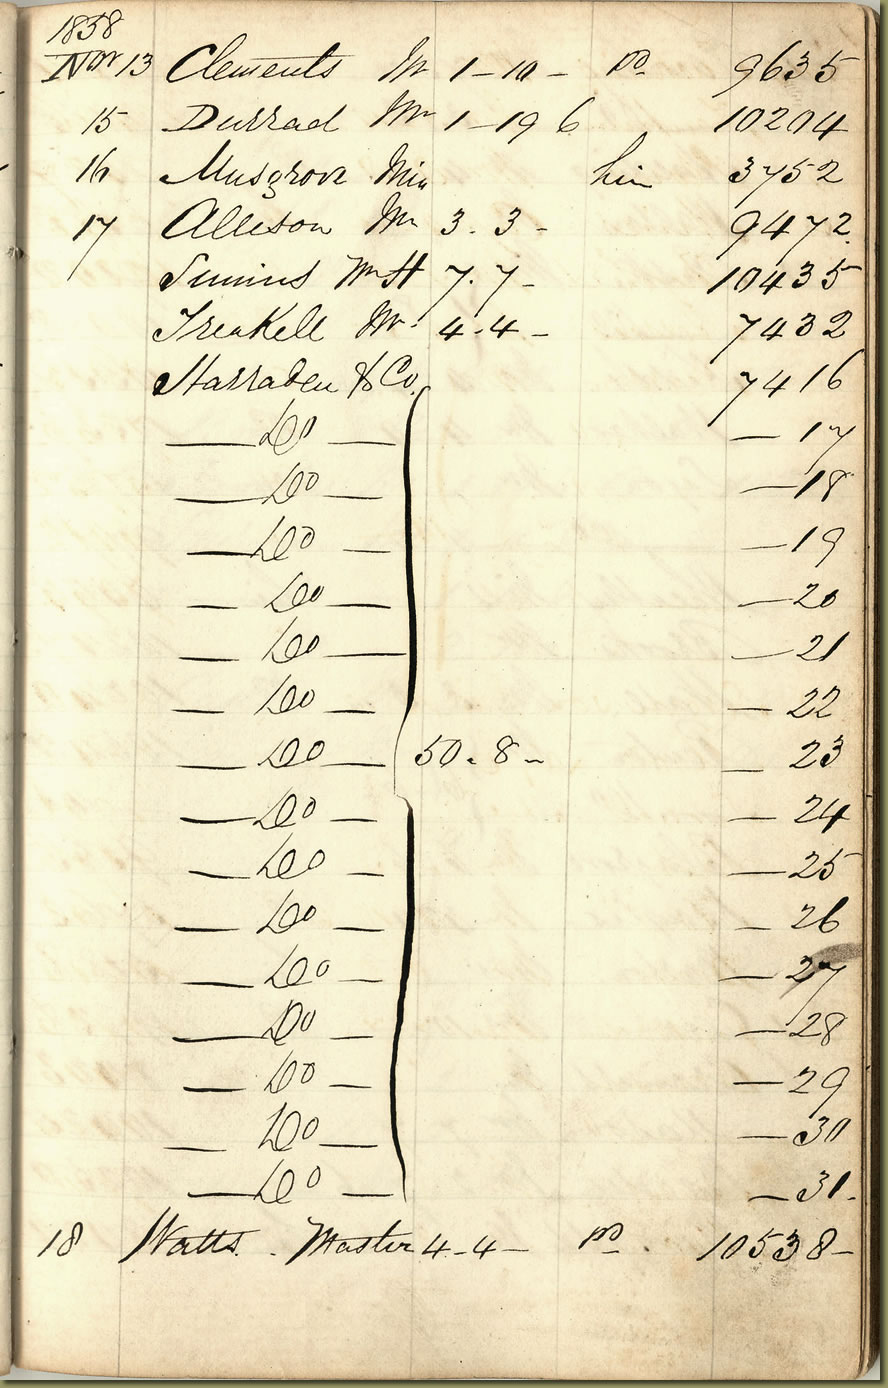 1858
Nov 13 Clements Mr 1-10- pd 9635
15 Durrad Mr 1-19 6 10204
16 Musgrove Miss him 3752
17 Allison Mr 3. 3- 9472.
Simins Wm H 7. 7- 10435
Treakell Mr. 4.4- 7432
Harraden & Co. 7416
— Do — — 17
— Do — — 18
— Do — — 19
— Do — — 20
— Do — — 21
— Do — — 22
— Do — 50. 8- — 23
— Do — — 24
— Do — — 25
— Do — — 26
— Do — — 27
— Do — — 28
— Do — — 29
— Do — — 30
— Do — — 31.
18 Watts. Master 4-4- pd. 10538-